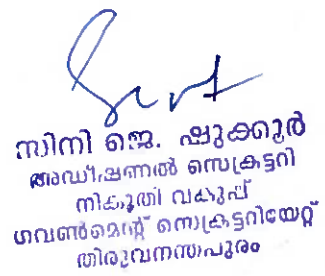 സിനി ജെ. ഷുക്കൂർ
അഡീഷണൽ സെക്രട്ടറി
നികുതി വകുപ്പ്
ഗവൺമെന്റ് സെക്രട്ടറിയേറ്റ്
തിരുവനന്തപുരം